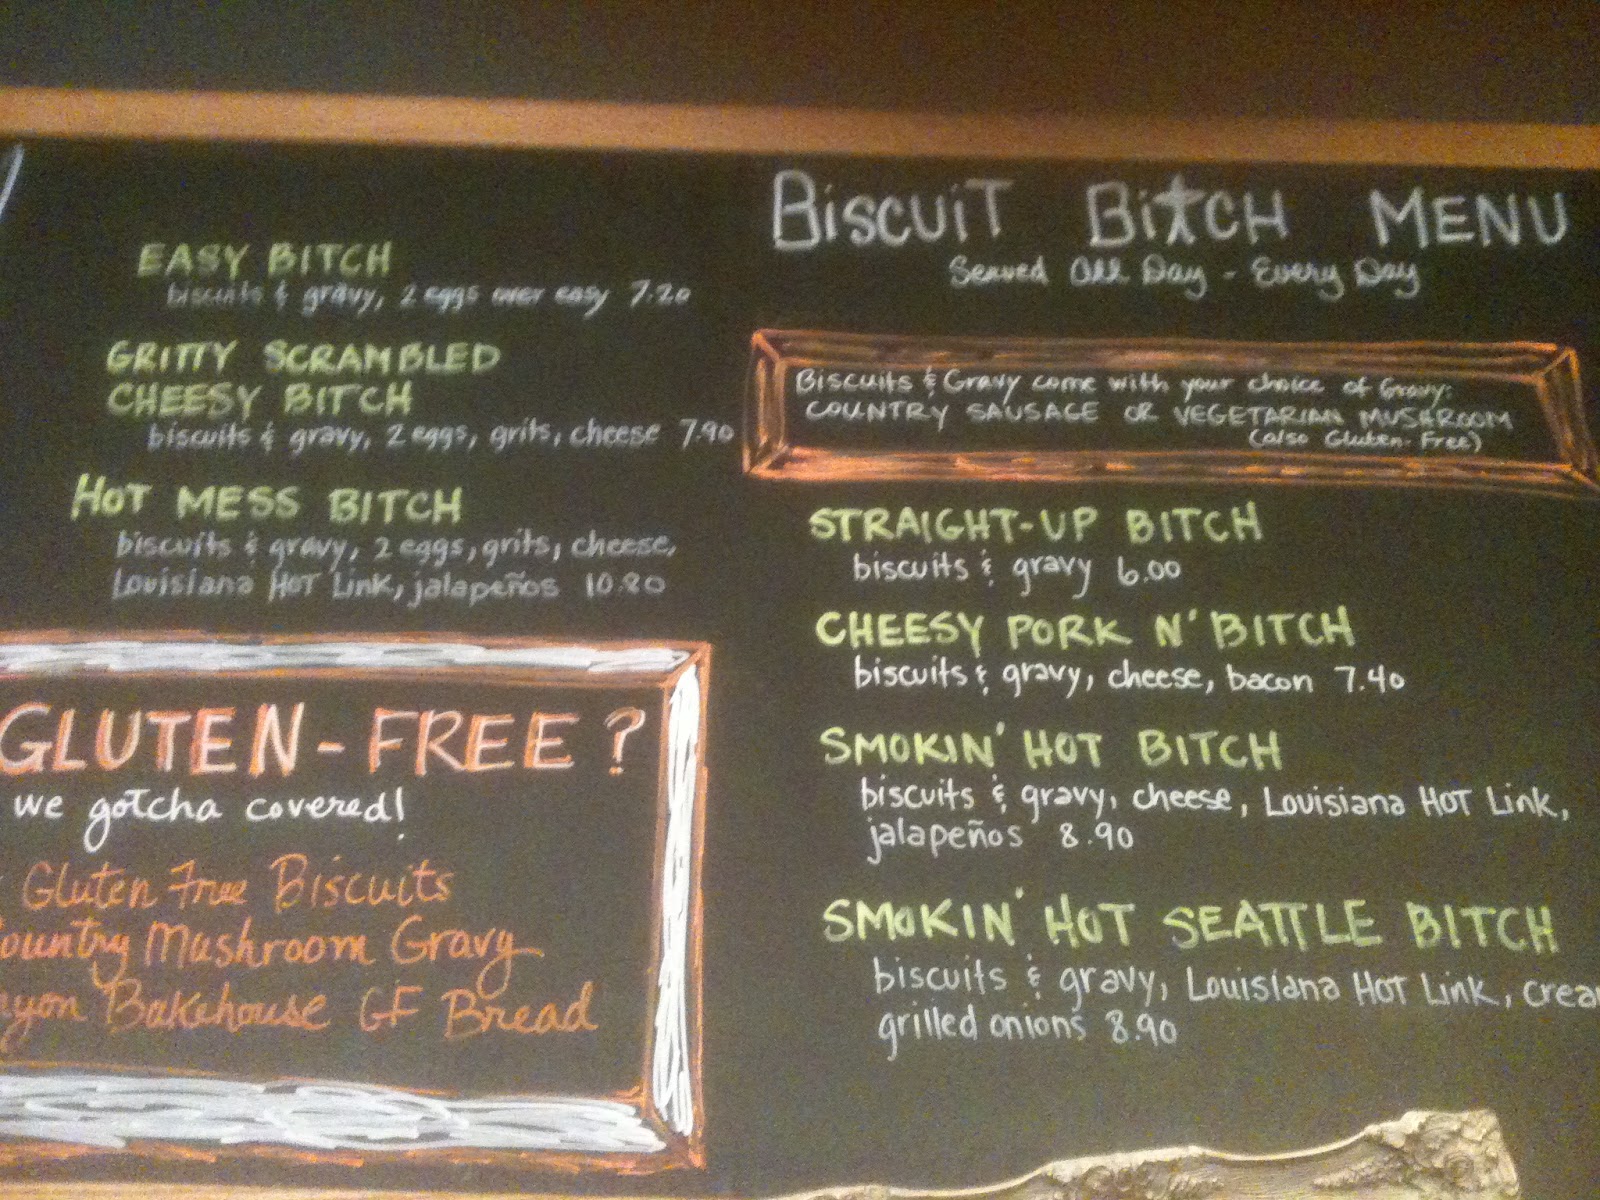 EASY BITCH
biscuits & gravy, 2 eggs over easy 7.20
GRITTY SCRAMBLED
CHEESY BITCH
biscuits & gravy, 2 eggs, grits, cheese 7.90
HOT MESS BITCH
biscuits & gravy, 2 eggs, grits, cheese,
Louisiana HOT Link, jalapeños 10.80
GLUTEN-FREE?
we gotcha covered!
Gluten Free Biscuits
Mushroom Gravy
Bakehouse GF Bread
BiscuiT BiTCH MENU
Served All Day - Every Day
Biscuits & Gravy come with your choice of Gravy:
COUNTRY SAUSAGE OR VEGETARIAN MUSHROOM
(also Gluten-Free)
STRAIGHT-UP BITCH
biscuits & gravy 6.00
CHEESY PORK N' BITCH
biscuits & gravy, cheese, bacon 7.40
SMOKIN' HOT BITCH
biscuits & gravy, cheese, Louisiana HOT Link,
jalapeños 8.90
SMOKIN' HOT SEATTLE BITCH
biscuits & gravy, Louisiana HOT Link,
grilled onions 8.90